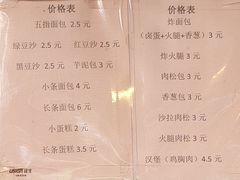 价格表
五指面包 2.5 元
绿豆沙 2.5 元 红豆沙 2.5 元
黑豆沙 2.5 元 芋泥包 3 元
小条面包 4 元
长条面包 6 元
小蛋糕 2 元
长条蛋糕 3.5 元
价格表
炸面包
(卤蛋+火腿+香葱) 3 元
炸火腿 3 元
肉松包 3 元
香葱包 3 元
沙拉肉松 3 元
火腿肉松 3 元
汉堡 (鸡胸肉) 4.5 元